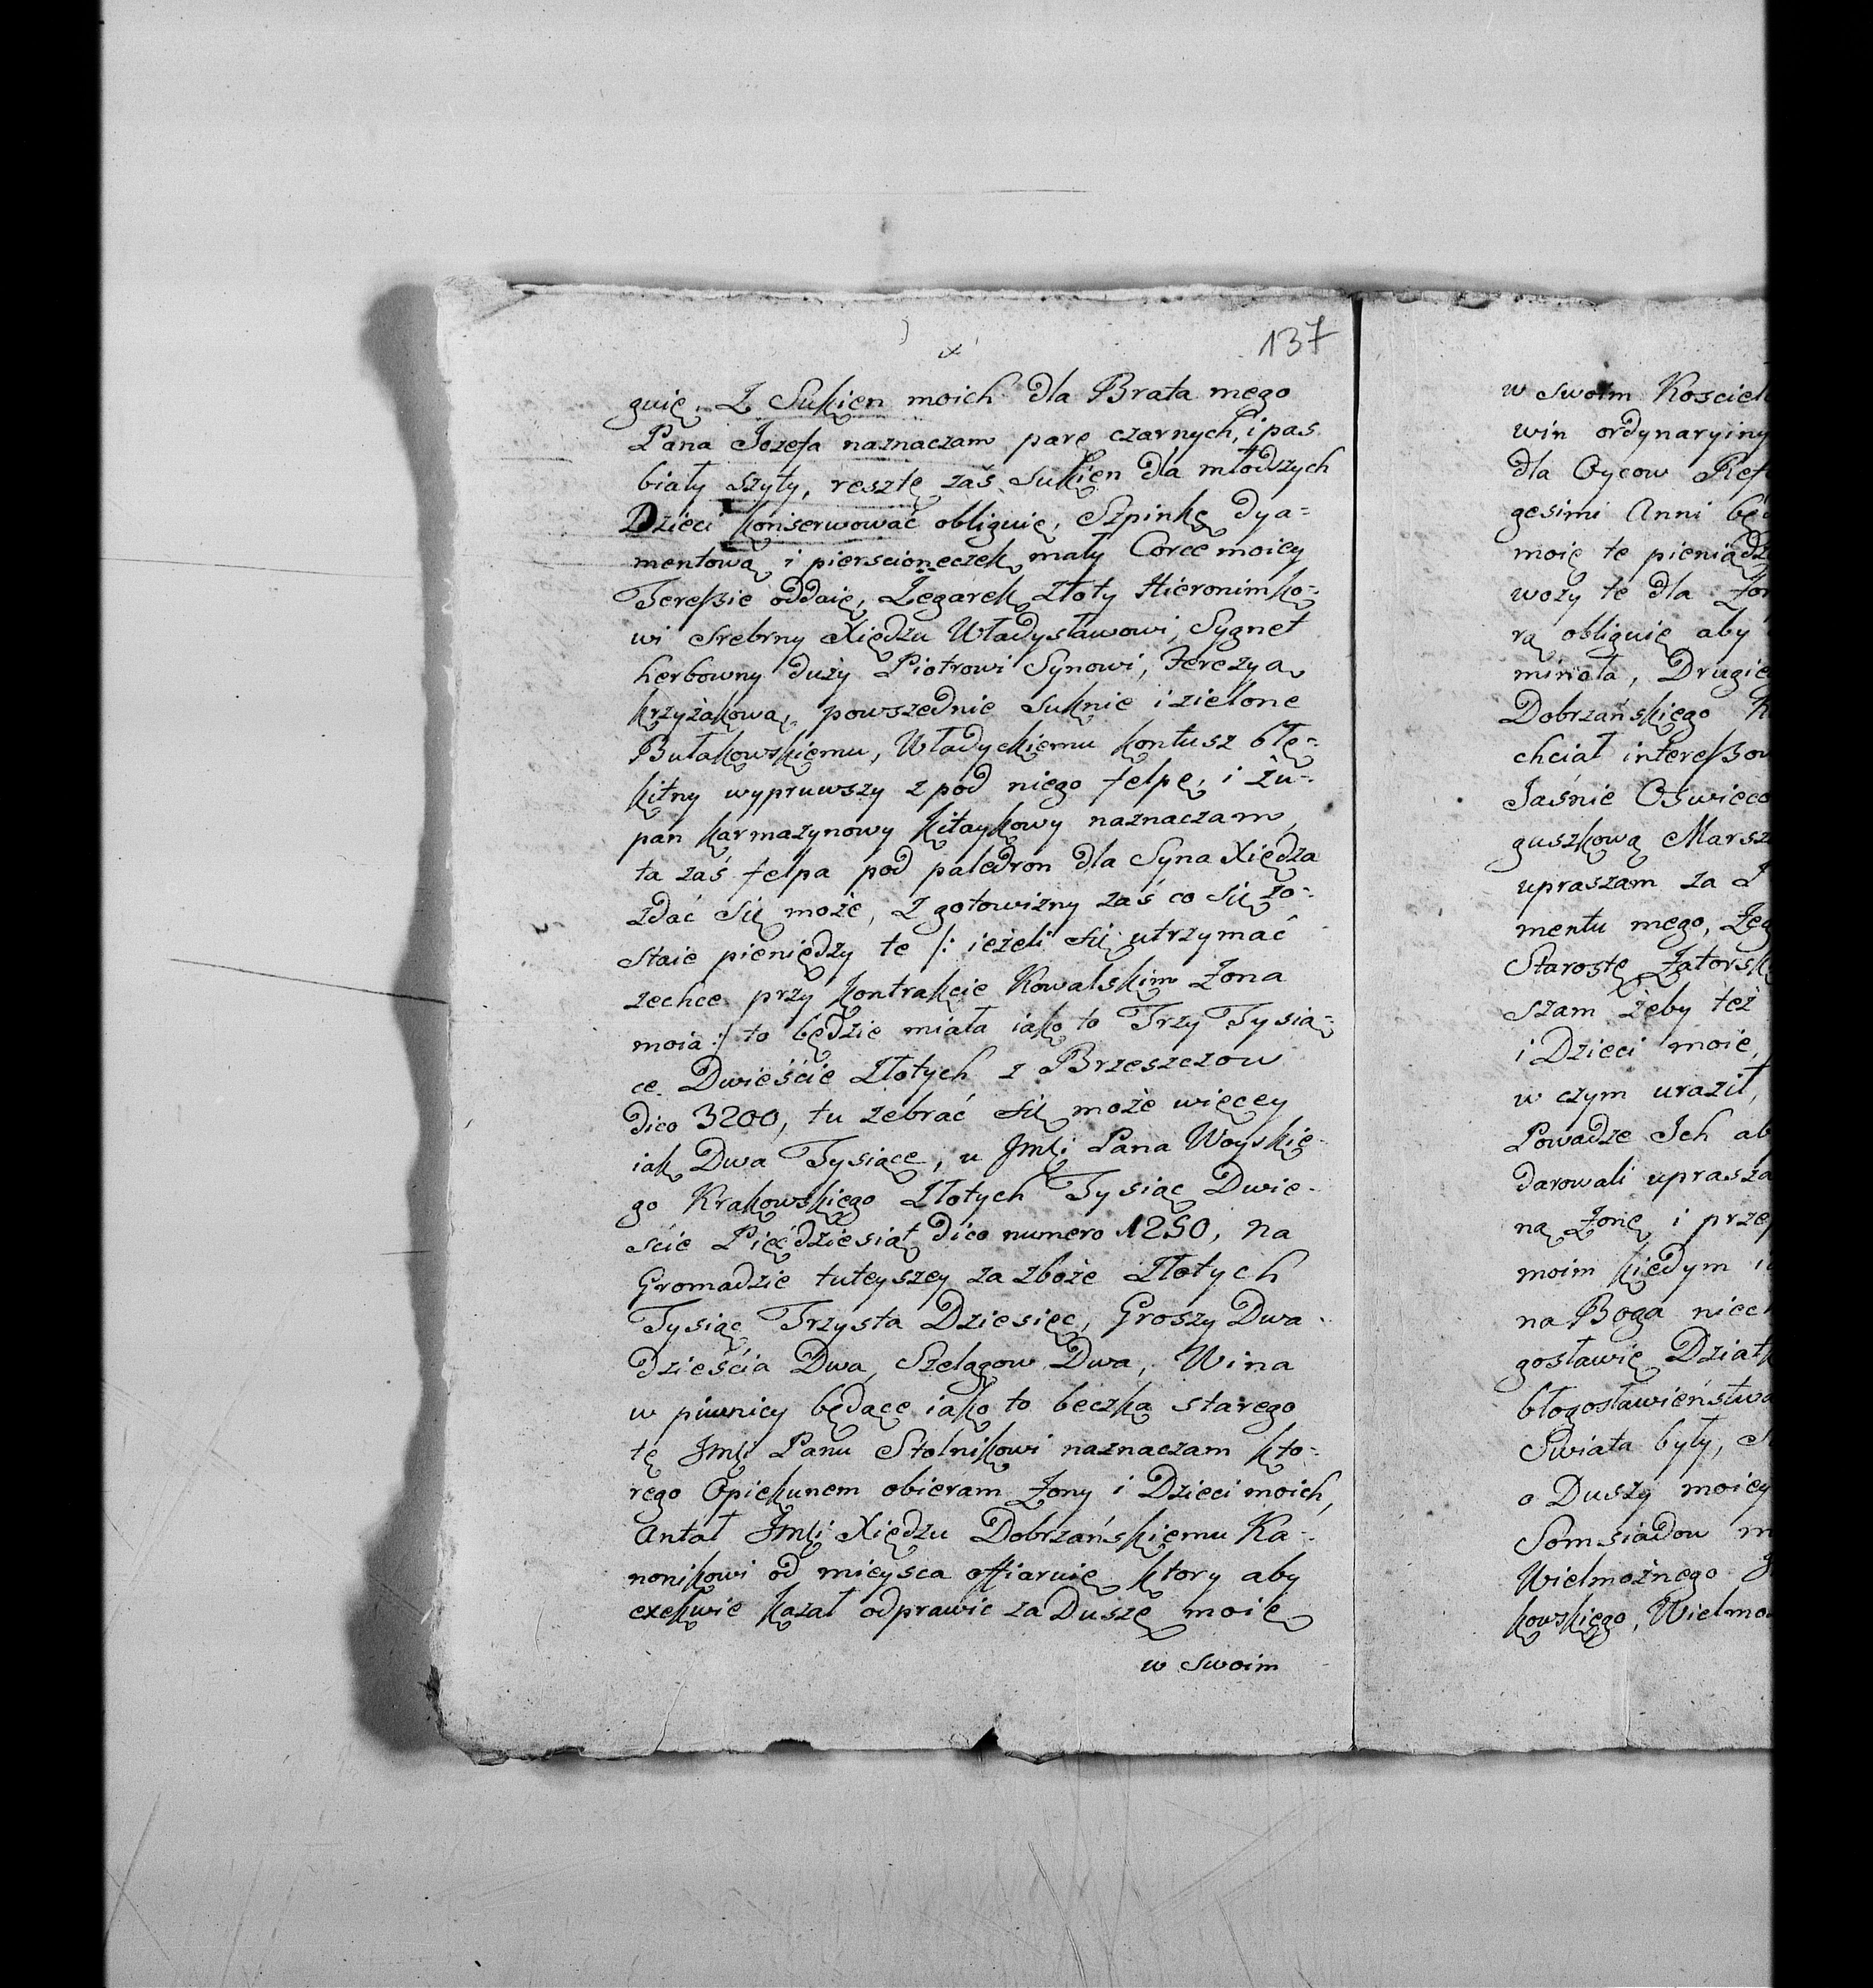 137
guię. Z Sukien moich dla Brata mego
Pana Jozefa naznaczam parę czarnych, i pas
biały szyty, resztę zaś Sukien dla młodszych
Dzieci konserwować obliguię, Szpinkę dya=
mentową i pierscioneczek mały Corce moiey
Tereßie oddaię, Zegarek Złoty Hieronimko=
wi Srebrny Xiędzu Władysławowi, Sygnet
herbowny duży Piotrowi Synowi, Ferezya
krzyżakowa, powszednie suknie i zielone
Bułakowskiemu, Władyckiemu kontusz błę=
kitny wypruwszy z pod niego felpę, i żu=
pan karmazynowy kitaykowy naznaczam,
ta zaś felpa pod paledron dla Syna Xiędza
zdać się może, z gotowizny zaś co się zo=
staie pieniędzy te /: ieżeli się utrzymać
zechce przy kontrakcie Kowalskim Zona
moia :/ to będzie miała iako to Trzy Tysią=
ce Dwieście Złotych z Brzeszczow
dico 3200, tu zebrać się może więcey
iak Dwa Tysiące, u Jmći Pana Woyskie
go Krakowskiego Złotych Tysiąc Dwie
ście Pięćdziesiąt dico numero 1250, na
Gromadzie tuteyszey za zboże Złotych
Tysiąc Trzysta Dziesięć, Groszy Dwa
dzieścia Dwa, Szelągow Dwa, Wina
w piwnicy będące iako to beczka starego
tę Jmći Panu Stolnikowi naznaczam kto=
rego Opiekunem obieram Zony i Dzieci moich,
Antał Jmći Xiędzu Dobrzańskiemu Ka=
nonikowi od mieysca offiaruię ktory aby
exekwie kazał odprawic za Duszę moię
w swoim
w Swoim Kosciel
win ordynaryiny
dla Oycow Ref
gesimi Anni
moię te pieniądz
wozy te dla
rą obliguię aby
miniała, Drugie
Dobrzańskiego
chciał intereßow
Jaśnie Oświeco
guszkową Marsz
upraszam za
mentu mego,
Starostę Zatorsk
szam żeby też
i Dzieci moie,
w czym uraził,
Powadze Ich ab
darowali uprasza
ną Zonę, i prze
moim kiedym
na Boga niech
gosławię Dziatk
błogosławieństwa
Swiata były,
o Duszy moiey
Somsiadow
Wielmożnego
kowskiego, Wielmo